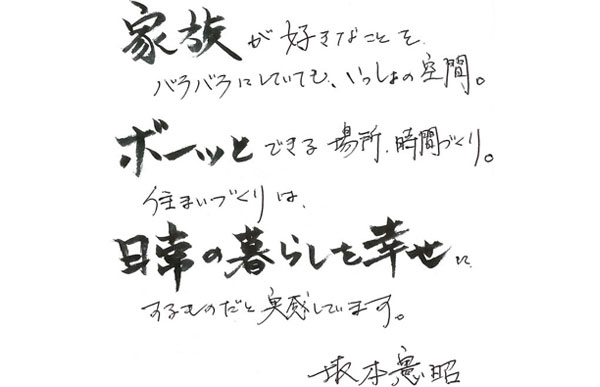 家族が好きなことを、
バラバラにしていても、いっしょの空間。
ボーッとできる場所、時間づくり。
住まいづくりは、
日常の暮らしを幸せに
するものだと実感しています。
坂本憲昭